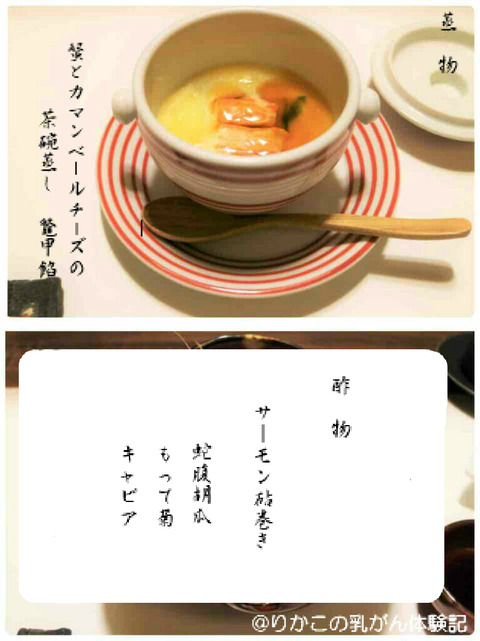 蒸物
蟹とカマンベールチーズの
茶碗蒸し　鼈甲餡
酢物
サーモン砧巻き
蛇腹胡瓜
もって菊
キャビア
@りかこの乳がん体験記